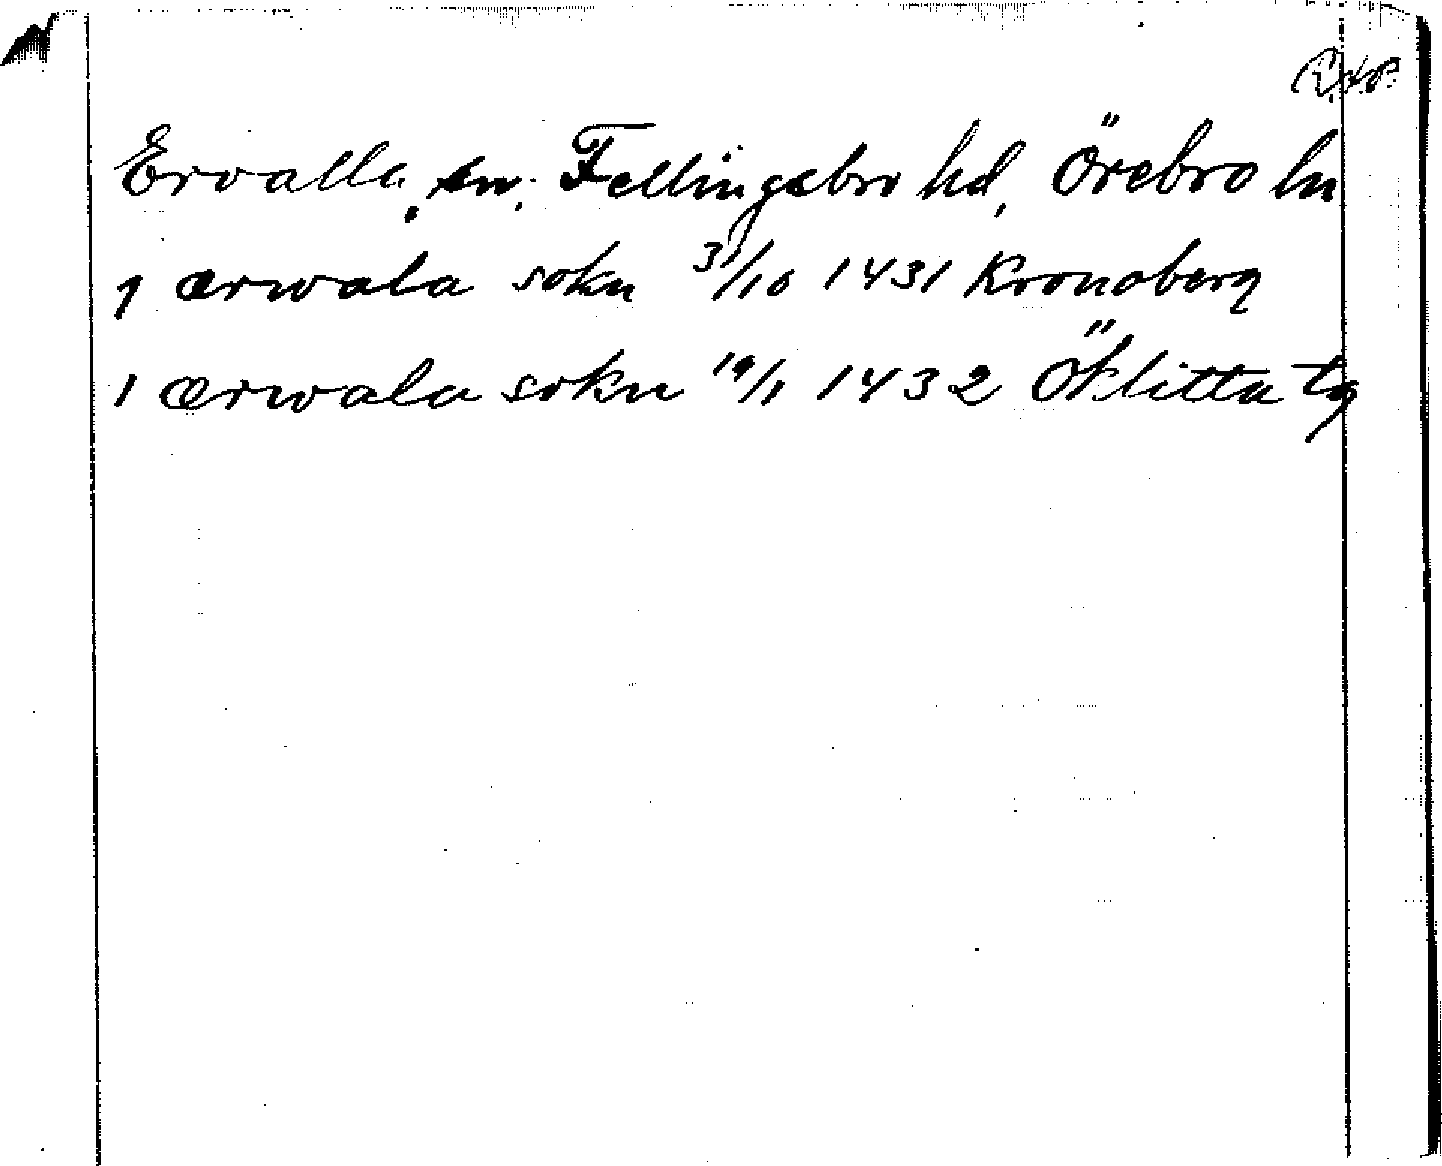 Ervalla, sn, Fellingsbro hd, Örebro ln
1 ærwala sokn 31/10 1431 Kronoberg
1 ærwala sokn 19/1 1432 Öklitta tg